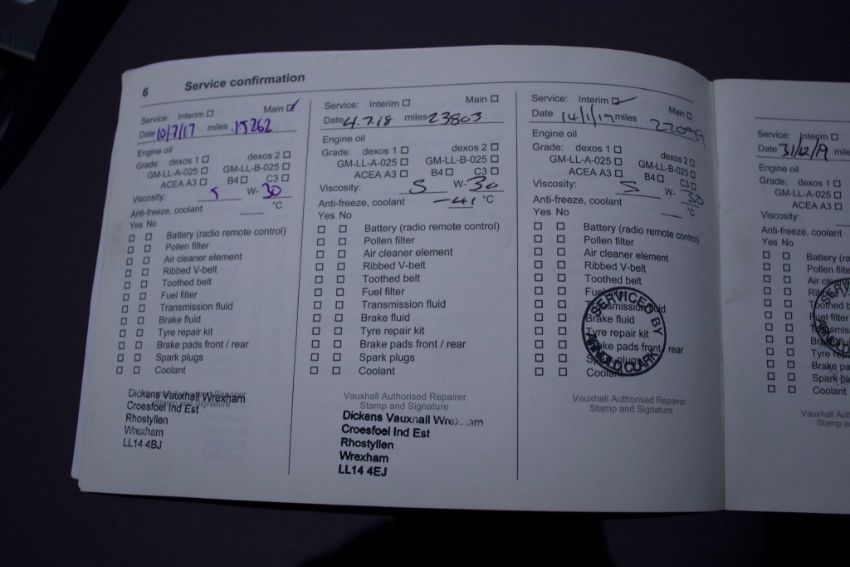 6 Service confirmation
Service: Interim ☐ Main ☑
Date 10/7/17 miles 15262
Engine oil
Grade: dexos 1 ☐ dexos 2 ☐
GM-LL-A-025 ☐ GM-LL-B-025 ☐
ACEA A3 ☐ B4 ☐ C3 ☐
Viscosity: 5 W- 30
Anti-freeze, coolant ___ °C
Yes No
☐ ☐ Battery (radio remote control)
☐ ☐ Pollen filter
☐ ☐ Air cleaner element
☐ ☐ Ribbed V-belt
☐ ☐ Toothed belt
☐ ☐ Fuel filter
☐ ☐ Transmission fluid
☐ ☐ Brake fluid
☐ ☐ Tyre repair kit
☐ ☐ Brake pads front / rear
☐ ☐ Spark plugs
☐ ☐ Coolant
Dickens Vauxhall Wrexham
Croesfoel Ind Est
Rhostyllen
Wrexham
LL14 4BJ
Service: Interim ☐ Main ☐
Date 4.7.18 miles 23803
Engine oil
Grade: dexos 1 ☐ dexos 2 ☐
GM-LL-A-025 ☐ GM-LL-B-025 ☐
ACEA A3 ☐ B4 ☐ C3 ☐
Viscosity: 5 W- 30
Anti-freeze, coolant -41 °C
Yes No
☐ ☐ Battery (radio remote control)
☐ ☐ Pollen filter
☐ ☐ Air cleaner element
☐ ☐ Ribbed V-belt
☐ ☐ Toothed belt
☐ ☐ Fuel filter
☐ ☐ Transmission fluid
☐ ☐ Brake fluid
☐ ☐ Tyre repair kit
☐ ☐ Brake pads front / rear
☐ ☐ Spark plugs
☐ ☐ Coolant
Vauxhall Authorised Repairer
Stamp and Signature
Dickens Vauxhall Wrexham
Croesfoel Ind Est
Rhostyllen
Wrexham
LL14 4EJ
Service: Interim ☑ Main ☐
Date 14/1/19 miles
Engine oil
Grade: dexos 1 ☐ dexos 2 ☐
GM-LL-A-025 ☐ GM-LL-B-025 ☐
ACEA A3 ☐ B4 ☐ C3 ☐
Viscosity: 5 W- 30
Anti-freeze, coolant ___ °C
Yes No
☐ ☐ Battery (radio remote control)
☐ ☐ Pollen filter
☐ ☐ Air cleaner element
☐ ☐ Ribbed V-belt
☐ ☐ Toothed belt
☐ ☐ Fuel filter
☐ ☐ Transmission fluid
☐ ☐ Brake fluid
☐ ☐ Tyre repair kit
☐ ☐ Brake pads front / rear
☐ ☐ Spark plugs
☐ ☐ Coolant
SERVICED BY
ARNOLD CLARK
Vauxhall Authorised Repairer
Stamp and Signature
Service: Interim ☐
Date 31/12/19 m
Engine oil
Grade: dexos 1 ☐
GM-LL-A-025 ☐
ACEA A3 ☐
Viscosity:
Anti-freeze, coolant
Yes No
☐ ☐ Battery (ra
☐ ☐ Pollen filte
☐ ☐ Air clea
☐ ☐ Ribbed V-
☐ ☐ Toothed b
☐ ☐ Fuel filter
☐ ☐ Transmis
☐ ☐ Brake flui
☐ ☐ Tyre rep
☐ ☐ Brake pa
☐ ☐ Spark pl
☐ ☐ Coolant
Vauxhall Aut
Stamp a